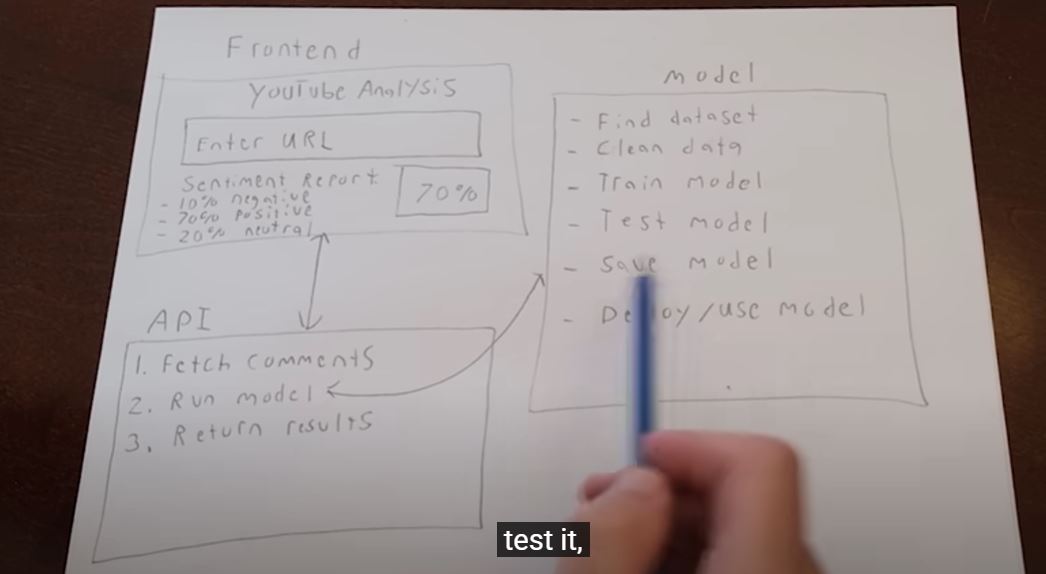 Frontend
YouTube Analysis
Enter URL
Sentiment Report
- 10% negative
- 70% positive
- 20% neutral
70%
API
1. Fetch comments
2. Run model
3. Return results
Model
- Find dataset
- Clean data
- Train model
- Test model
- Save model
- Deploy/use model
test it,